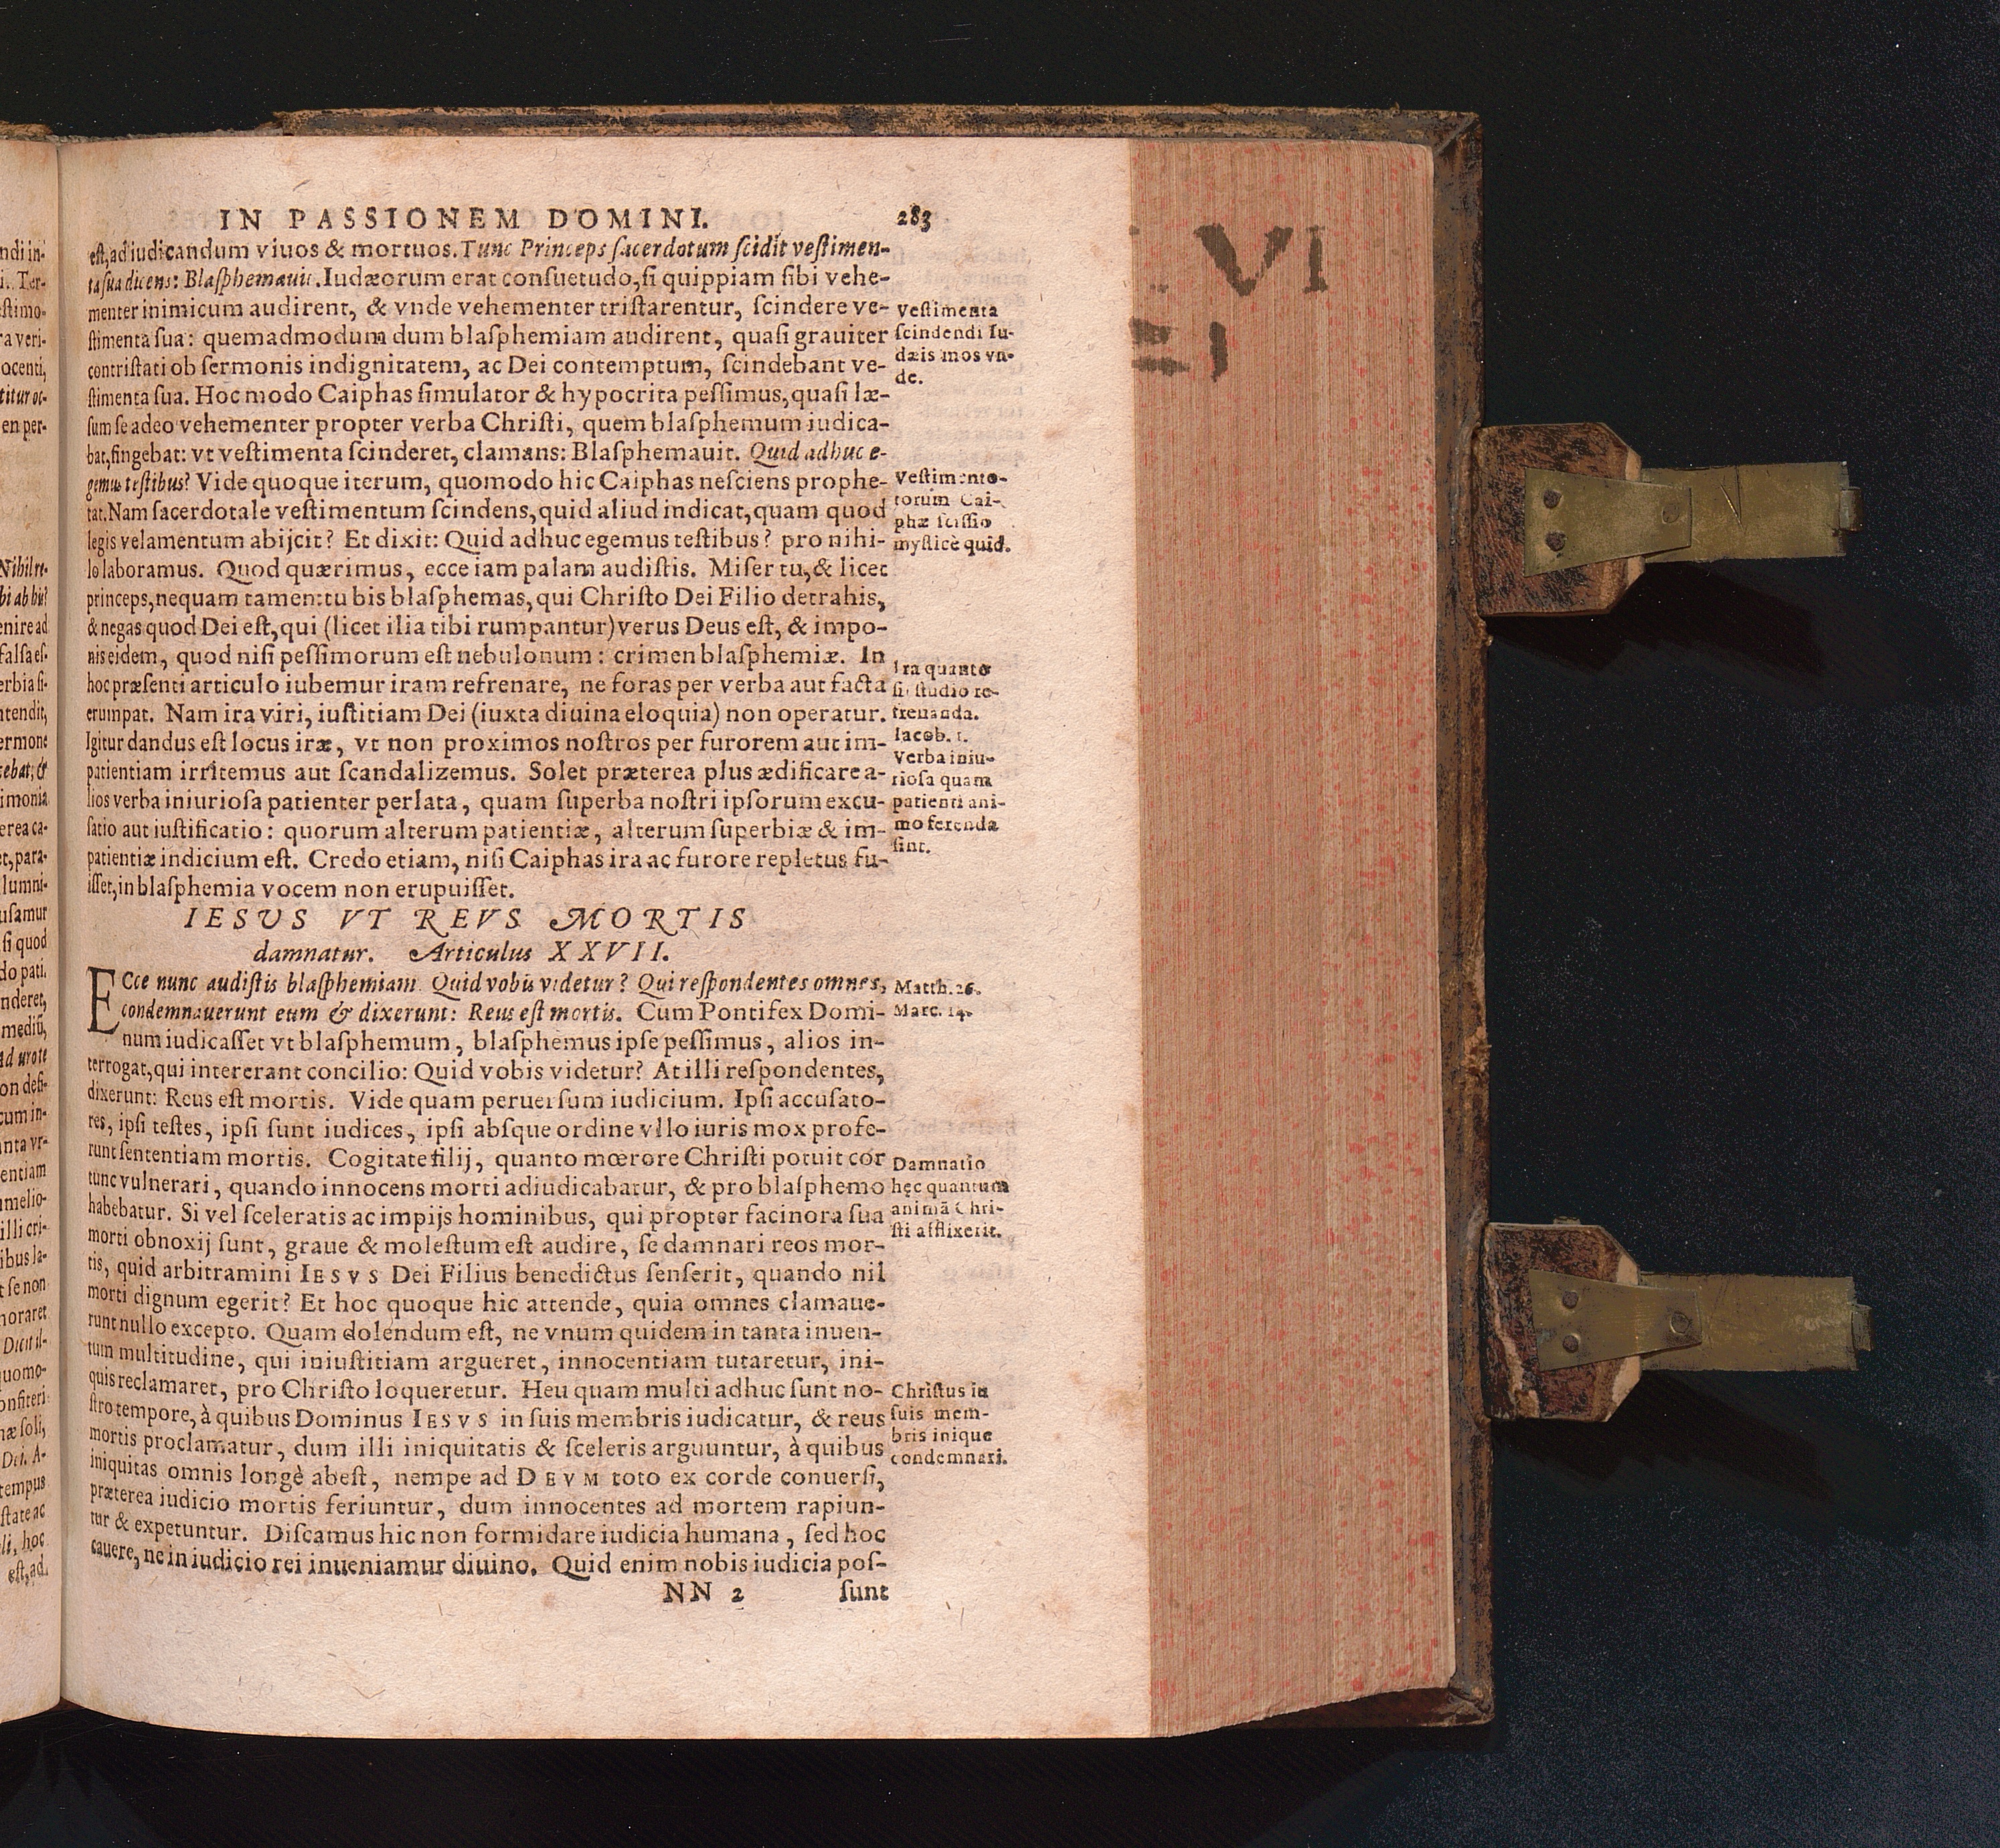 IN PASSIONEM DOMINI. 283
est, ad iudicandum viuos & mortuos. Tunc Princeps sacerdotum scidit vestimen-
ta sua dicens: Blasphemauit. Iudæorum erat consuetudo, si quippiam sibi vehe-
menter inimicum audirent, & vnde vehementer tristarentur, scindere ve-
stimenta sua: quemadmodum dum blasphemiam audirent, quasi grauiter
contristati ob sermonis indignitatem, ac Dei contemptum, scindebant ve-
stimenta sua. Hoc modo Caiphas simulator & hypocrita pessimus, quasi læ-
sum se adeo vehementer propter verba Christi, quem blasphemum iudica-
bat, fingebat: vt vestimenta scinderet, clamans: Blasphemauit. Quid adhuc e-
gemus testibus? Vide quoque iterum, quomodo hic Caiphas nesciens prophe-
tat. Nam sacerdotale vestimentum scindens, quid aliud indicat, quam quod
legis velamentum abijcit? Et dixit: Quid adhuc egemus testibus? pro nihi-
lo laboramus. Quod quærimus, ecce iam palam audistis. Miser tu, & licet
princeps, nequam tamen: tu bis blasphemas, qui Christo Dei Filio detrahis,
& negas quod Dei est, qui (licet ilia tibi rumpantur) verus Deus est, & impo-
nis eidem, quod nisi pessimorum est nebulonum: crimen blasphemiæ. In
hoc præsenti articulo iubemur iram refrenare, ne foras per verba aut facta
erumpat. Nam ira viri, iustitiam Dei (iuxta diuina eloquia) non operatur.
Igitur dandus est locus iræ, vt non proximos nostros per furorem aut im-
patientiam irritemus aut scandalizemus. Solet præterea plus ædificare a-
lios verba iniuriosa patienter perlata, quam superba nostri ipsorum excu-
satio aut iustificatio: quorum alterum patientiæ, alterum superbiæ & im-
patientiæ indicium est. Credo etiam, nisi Caiphas ira ac furore repletus fu-
isset, in blasphemia vocem non erupuisset.
IESUS VT REVS MORTIS
damnatur. Articulus XXVII.
ECce nunc audistis blasphemiam. Quid vobis videtur? Qui respondentes omnes,
condemnauerunt eum & dixerunt: Reus est mortis. Cum Pontifex Domi-
num iudicasset vt blasphemum, blasphemus ipse pessimus, alios in-
terrogat, qui intererant concilio: Quid vobis videtur? At illi respondentes,
dixerunt: Reus est mortis. Vide quam peruersum iudicium. Ipsi accusato-
res, ipsi testes, ipsi sunt iudices, ipsi absque ordine vllo iuris mox profe-
runt sententiam mortis. Cogitate filij, quanto mœrore Christi potuit cor
tunc vulnerari, quando innocens morti adiudicabatur, & pro blasphemo
habebatur. Si vel sceleratis ac impijs hominibus, qui propter facinora sua
morti obnoxij sunt, graue & molestum est audire, se damnari reos mor-
tis, quid arbitramini IESVS Dei Filius benedictus senserit, quando nil
morti dignum egerit? Et hoc quoque hic attende, quia omnes clamaue-
runt nullo excepto. Quam dolendum est, ne vnum quidem in tanta inuen-
tum multitudine, qui iniustitiam argueret, innocentiam tutaretur, ini-
quis reclamaret, pro Christo loqueretur. Heu quam multi adhuc sunt no-
stro tempore, à quibus Dominus IESVS in suis membris iudicatur, & reus
mortis proclamatur, dum illi iniquitatis & sceleris arguuntur, à quibus
iniquitas omnis longè abest, nempe ad DEVM toto ex corde conuersi,
præterea iudicio mortis feriuntur, dum innocentes ad mortem rapiun-
tur & expetuntur. Discamus hic non formidare iudicia humana, sed hoc
cauere, ne in iudicio rei inueniamur diuino. Quid enim nobis iudicia pos-
NN 2 sunt
Vestimenta
scindendi Iu-
dæis mos vn-
de.
Vestimento-
torum Cai-
phæ scissio
mysticè quid.
Ira quanto
sit studio re-
frenanda.
Iacob. 1.
Verba iniu-
riosa quam
patienti ani-
mo ferenda
sint.
Matth. 26.
Marc. 14.
Damnatio
hęc quantum
animā Chri-
sti afflixerit.
Christus in
suis mem-
bris inique
condemnari.
VI